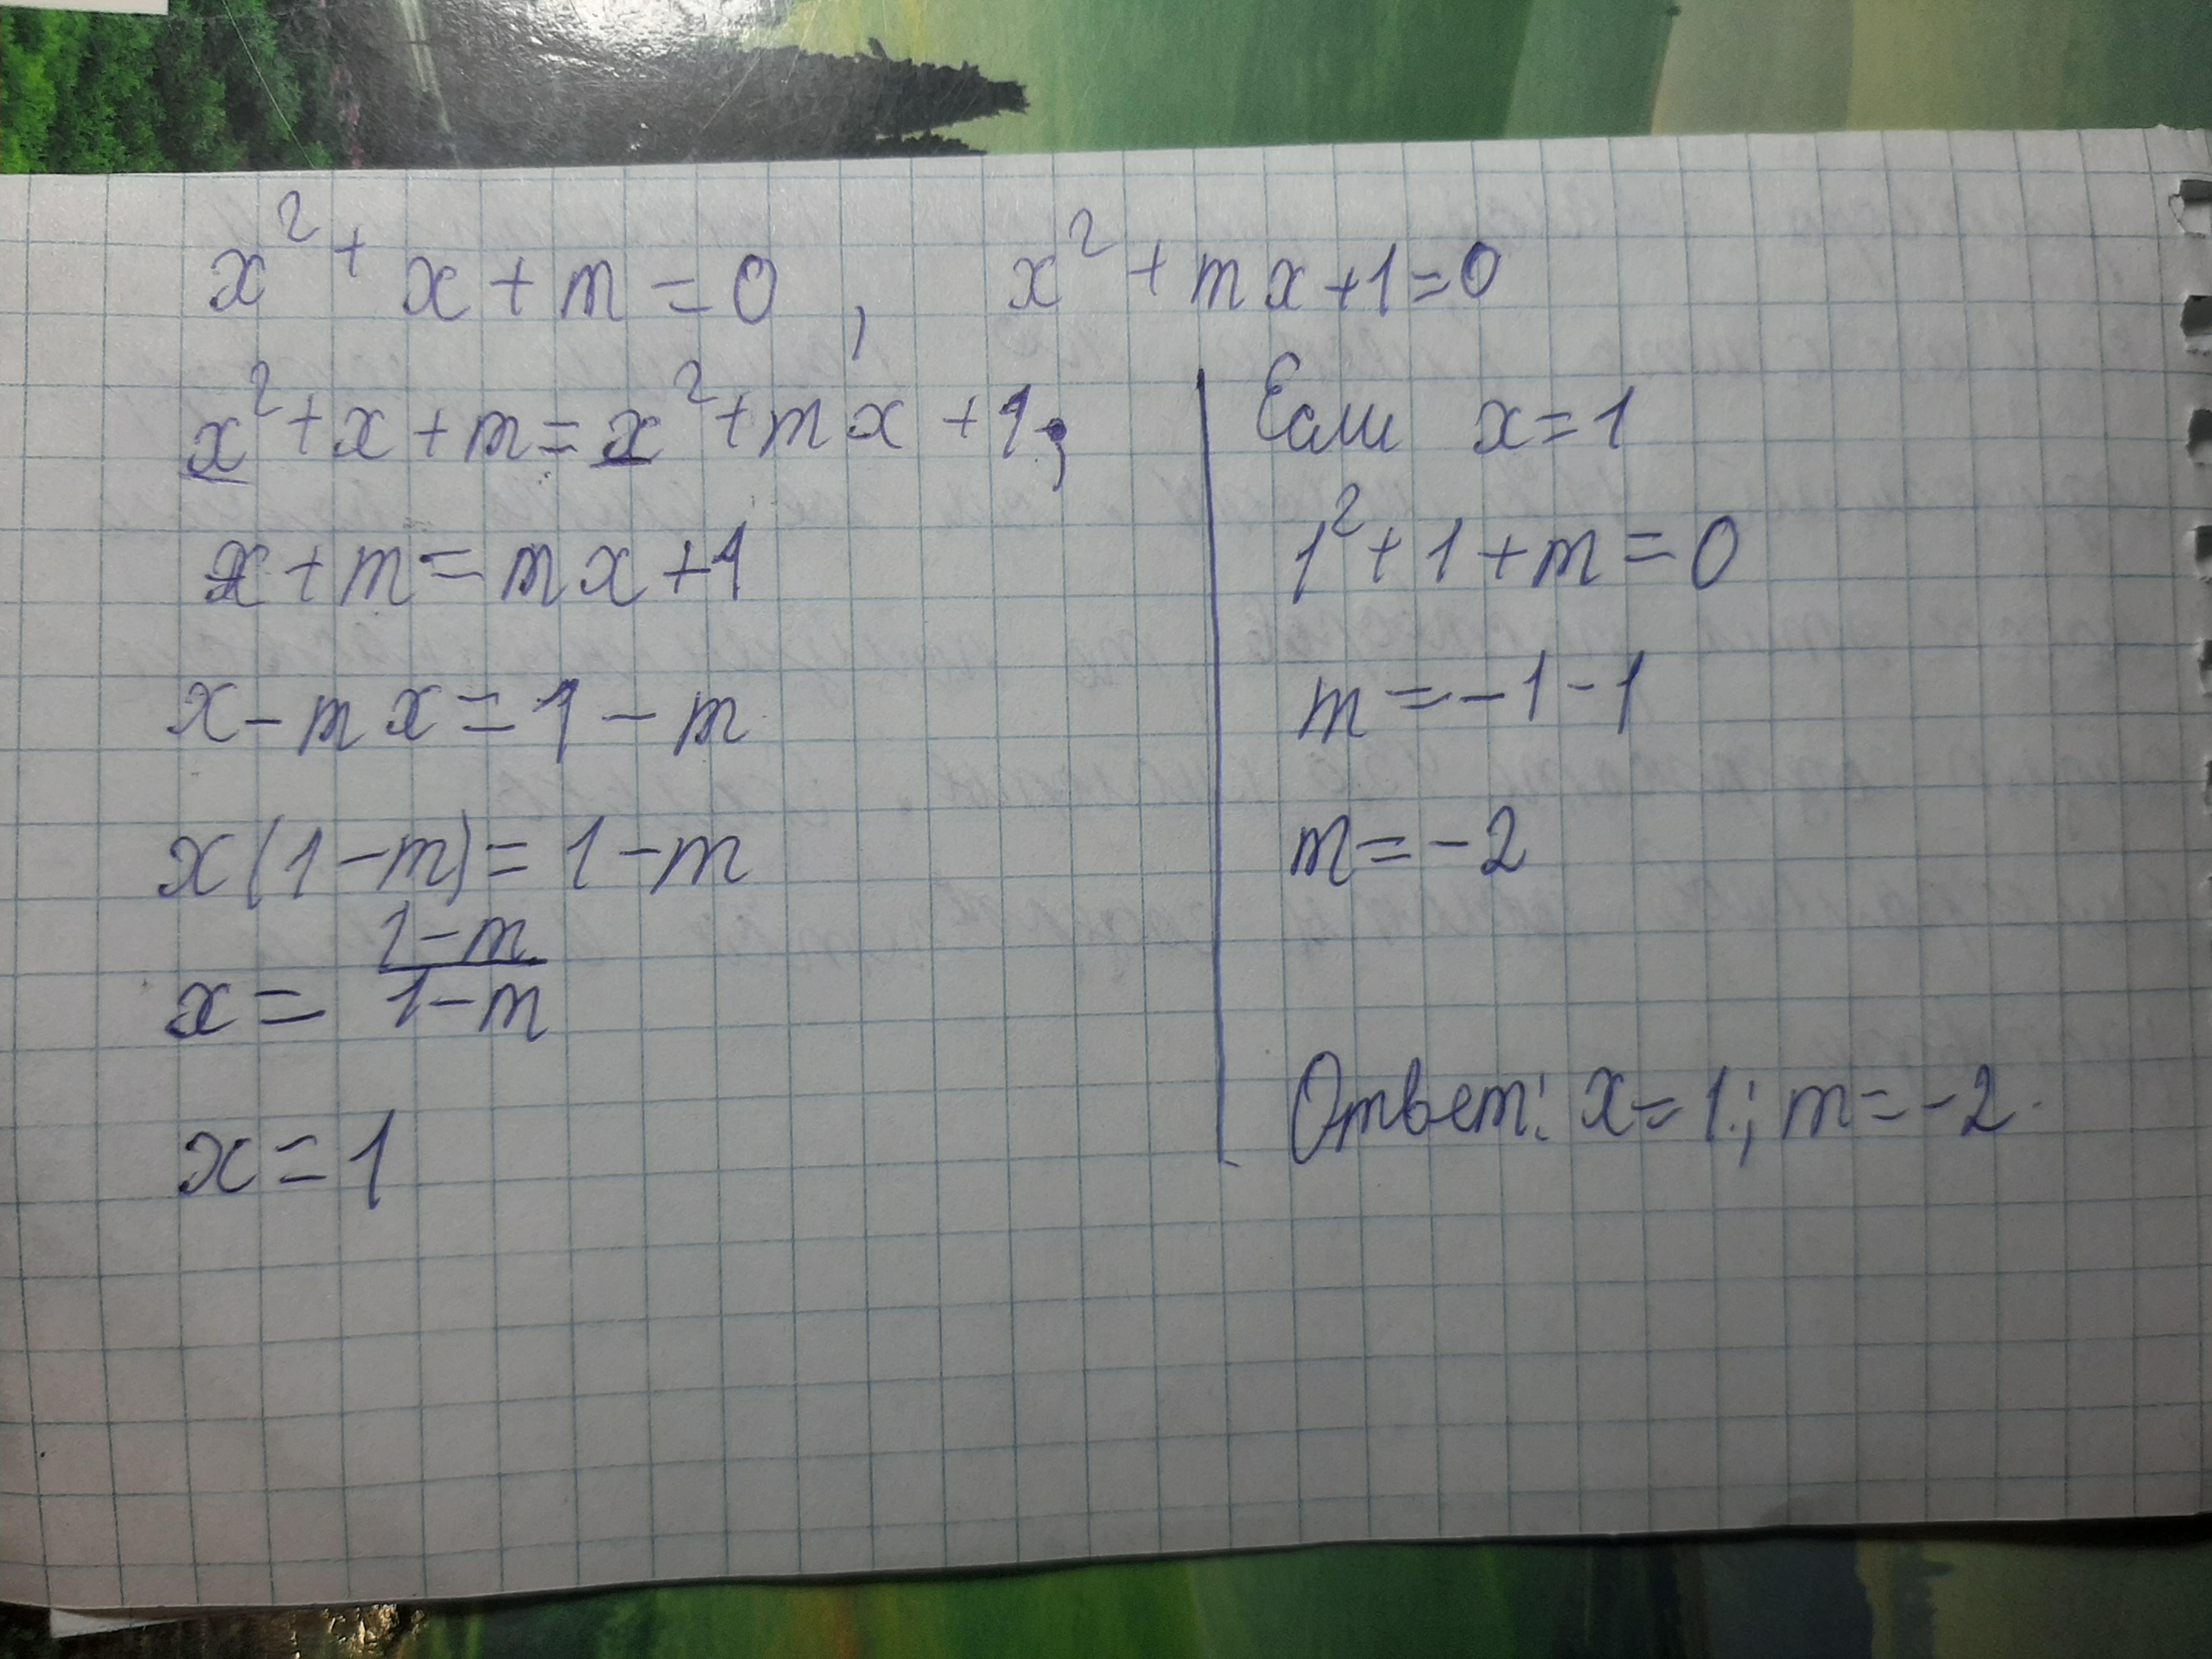 x² + x + m = 0 , x² + mx + 1 = 0
x² + x + m = x² + mx + 1;
x + m = mx + 1
x - mx = 1 - m
x(1 - m) = 1 - m
x = (1 - m)/(1 - m)
x = 1
Если x = 1
1² + 1 + m = 0
m = -1 - 1
m = -2
Ответ: x = 1; m = -2.